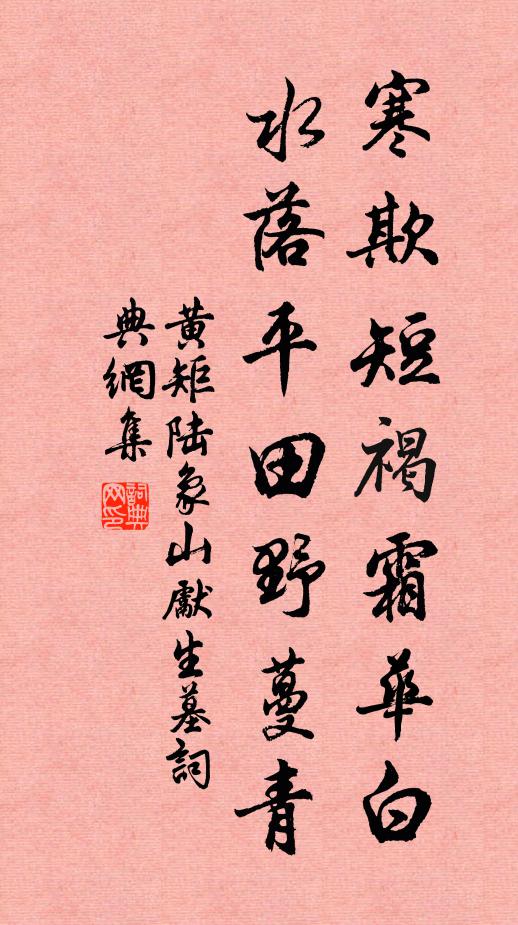 寒欺短褐霜華白
水落平田野蔓青
黄矩陆象山獻生墓詞
典網集
詞典网印